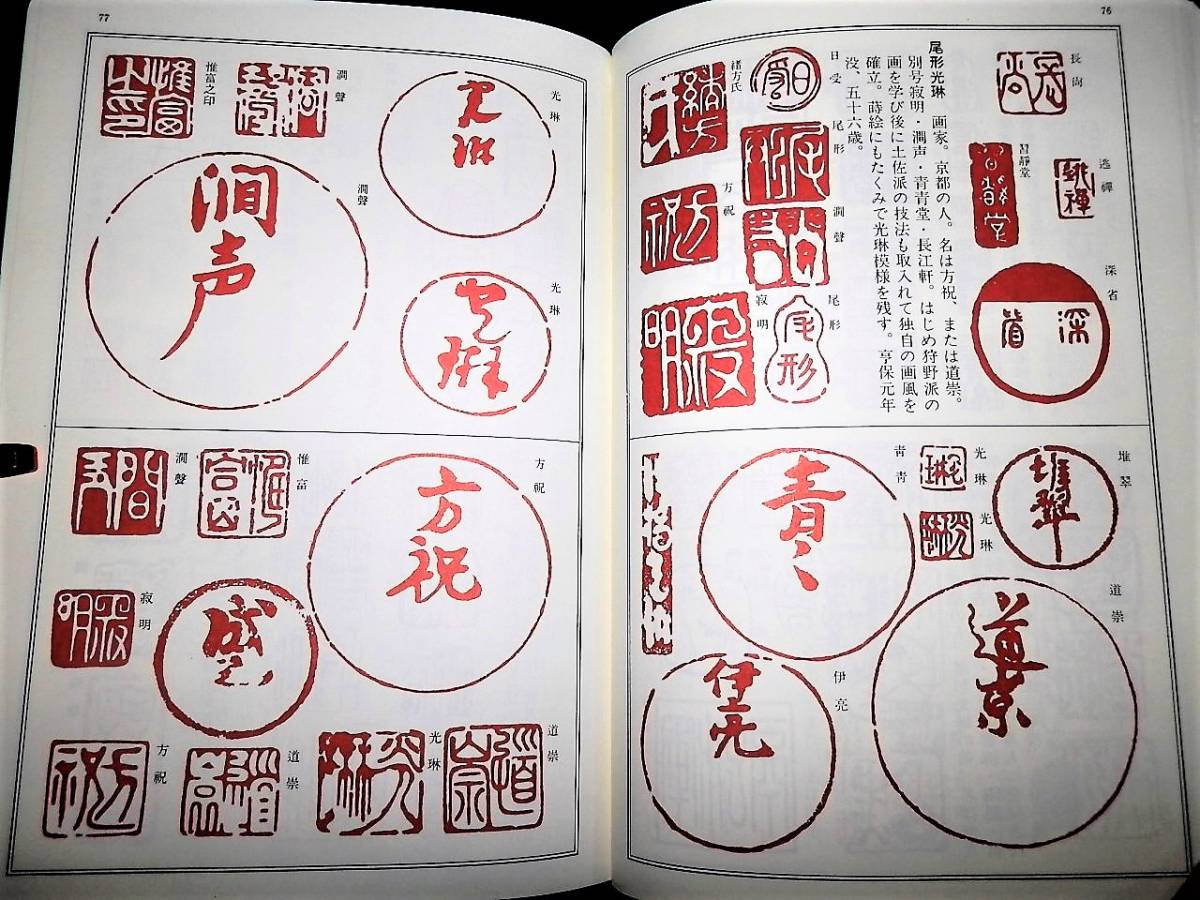 76
長尚
逃禅
習靜堂
深省
尾形光琳　画家。京都の人。名は方祝、または道崇。
別号寂明・澗声・青青堂・長江軒。はじめ狩野派の
画を学び後に土佐派の技法も取入れて独自の画風を
確立。蒔絵にもたくみで光琳模様を残す。享保元年
没、五十六歳。
日受
尾形
澗聲
尾形
緒方氏
方祝
寂明
堆翠
光琳
光琳
道崇
青青
伊亮
77
光琳
光琳
澗聲
澗聲
惟富之印
方祝
惟富
澗聲
寂明
道崇
光琳
道崇
方祝
深省
澗声
方祝
青々
道崇
伊亮
堆翠